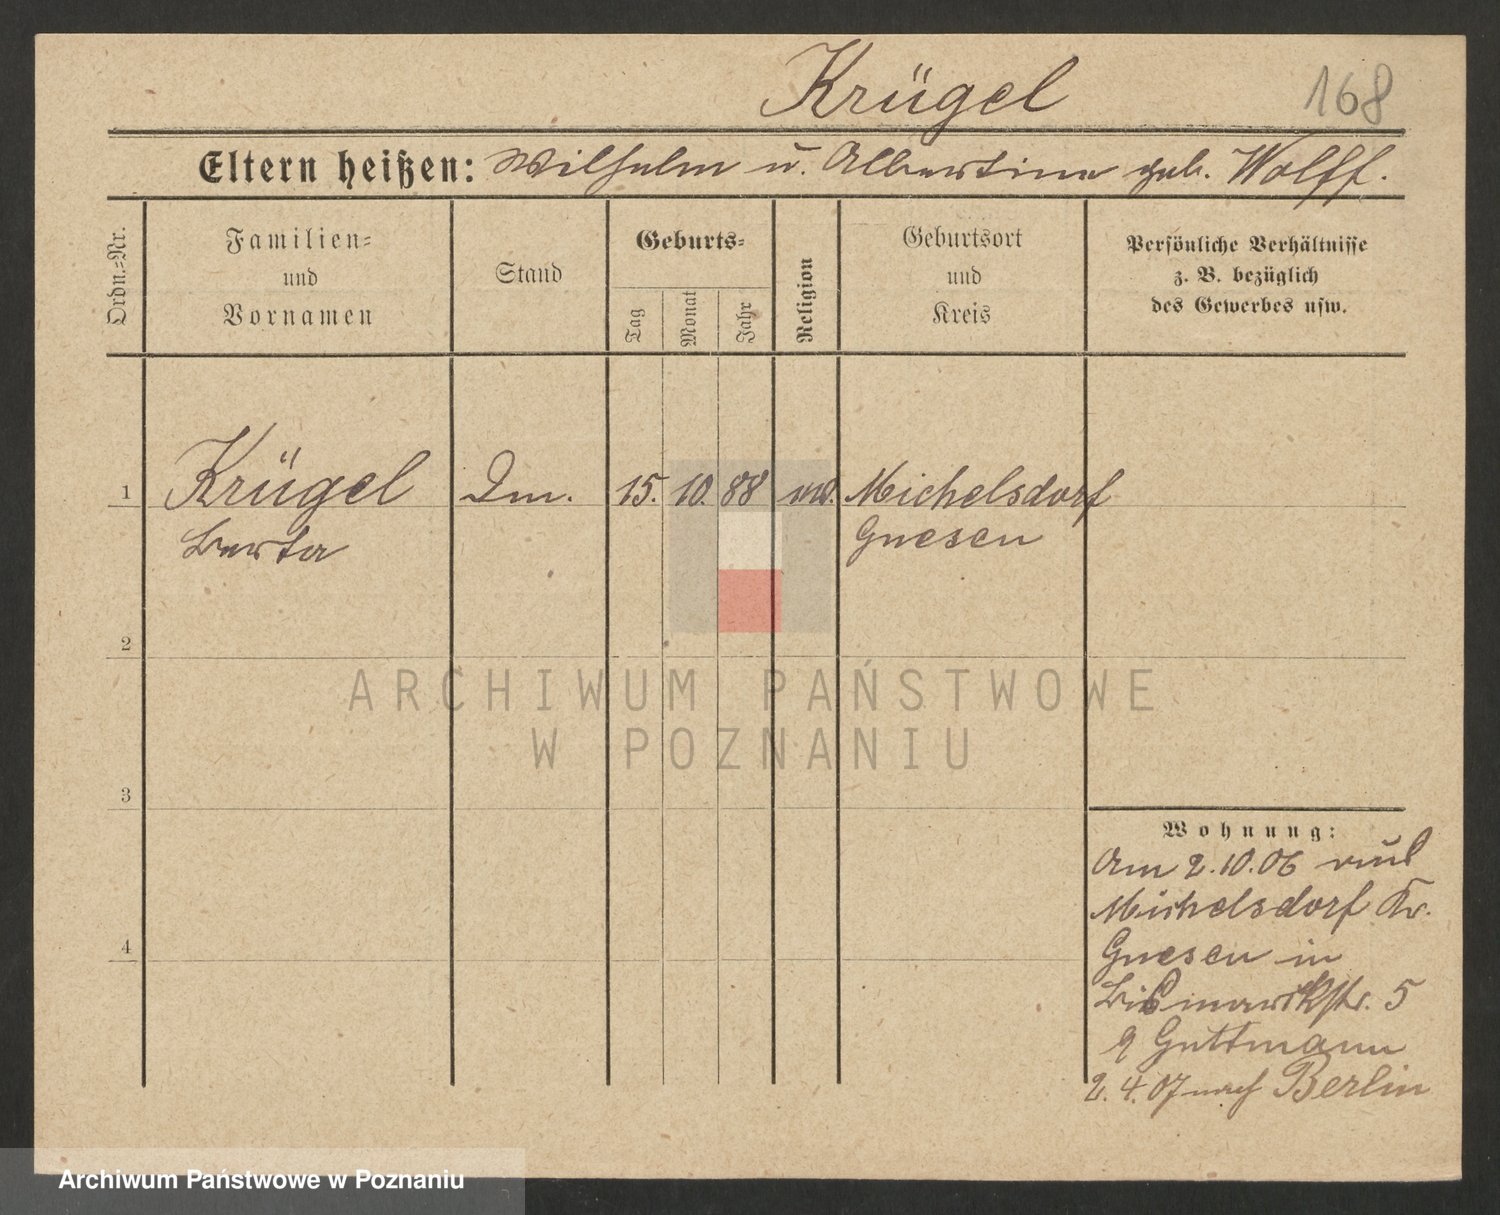 Krügel 168
Eltern heißen: Wilhelm u. Albertine geb. Wolff.
Ordn.-Nr.
Familien-
und
Vornamen
Stand
Geburts-
Tag
Monat
Jahr
Religion
Geburtsort
und
Kreis
Persönliche Verhältnisse
z. B. bezüglich
des Gewerbes usw.
1 Krügel Dm. 15. 10. 88 Michelsdorf
Berta Gnesen
2
3
4
ARCHIWUM PAŃSTWOWE
W POZNANIU
Wohnung:
Am 2.10.06 aus
Michelsdorf Kr.
Gnesen in
Bismarckstr. 5
Guttmann
2.4.07 nach Berlin
Archiwum Państwowe w Poznaniu